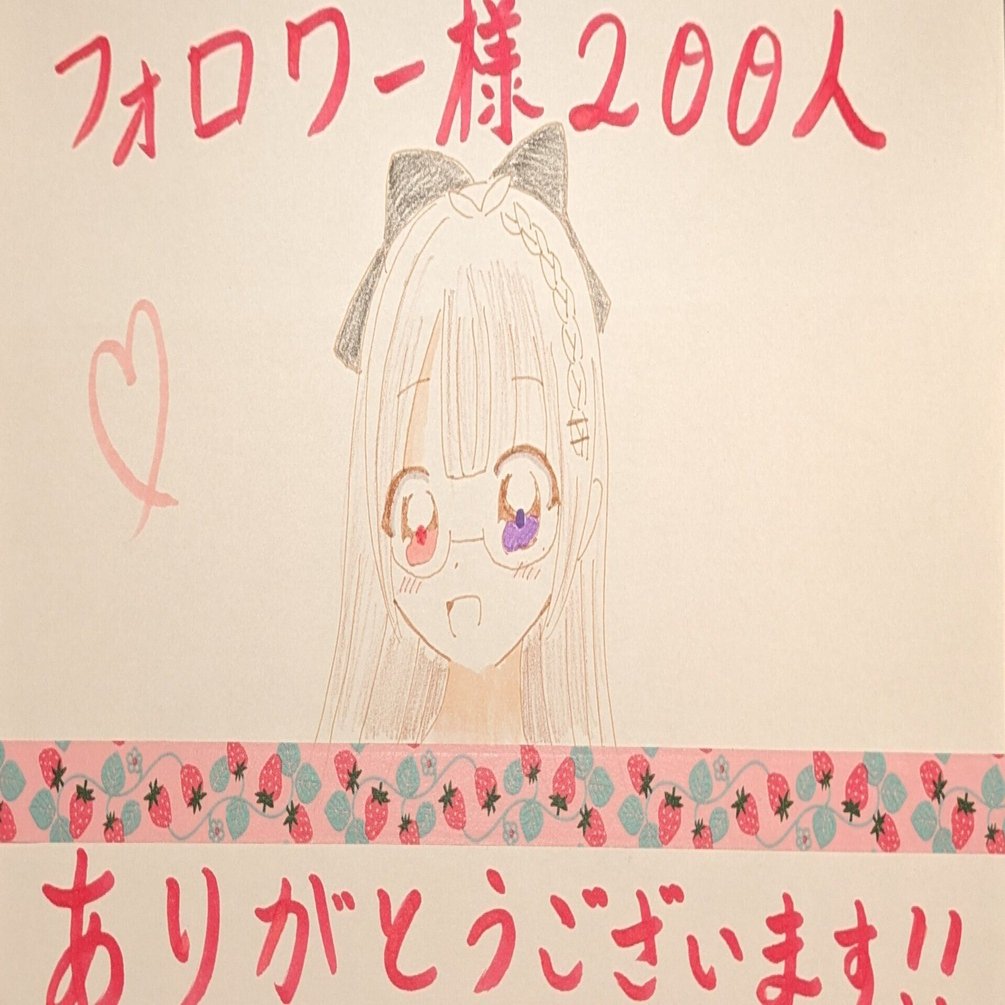 フォロワー様200人
ありがとうございます!!